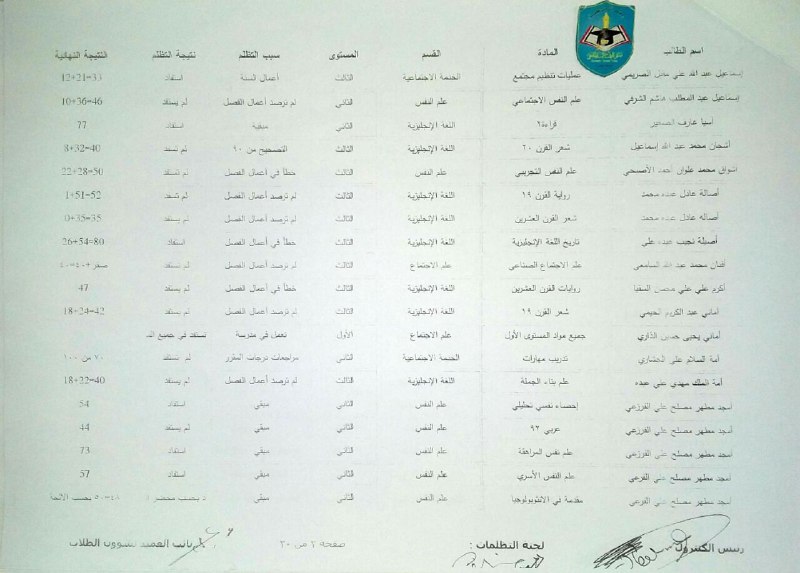 اسم الطالب المادة القسم المستوى سبب التظلم نتيجة التظلم النتيجة النهائية
إسماعيل عبد الله علي عادل الصريمي عمليات تنظيم مجتمع الخدمة الاجتماعية الثالث أعمال السنة استفاد 33=21+12
إسماعيل عبد المطلب هاشم الشوفي علم النفس الاجتماعي علم النفس الثاني لم ترصد أعمال الفصل لم يستفد 46=36+10
آسيا عارف الصغير قراءة٢ اللغة الإنجليزية الثاني متبقية استفاد 77
أشجان محمد عبد الله إسماعيل شعر القرن ٢٠ اللغة الإنجليزية الثالث التصحيح من ٩٠ لم تستفد 40=32+8
أشواق محمد علوان أحمد الأصبحي علم النفس التجريبي علم النفس الثالث خطأ في أعمال الفصل لم تستفد 50=28+22
أصالة عادل عبده محمد رواية القرن ١٩ اللغة الإنجليزية الثالث لم ترصد أعمال الفصل لم تستفد 52=51+1
أصاله عادل عبده محمد شعر القرن العشرين اللغة الإنجليزية الثالث لم ترصد أعمال الفصل لم يستفد 35=35+0
أصيلة نجيب عبده علي تاريخ اللغة الإنجليزية اللغة الإنجليزية الثالث خطأ في أعمال الفصل استفاد 80=54+26
أفنان محمد عبد الله السامعي علم الاجتماع الصناعي علم الاجتماع الثالث لم ترصد أعمال الفصل لم يستفد صفر+٤٠=٤٠
أكرم علي علي محسن السقيا روايات القرن العشرين اللغة الإنجليزية الثالث خطأ في أعمال الفصل لم يستفد 47
أماني عبد الكريم الحيمي شعر القرن ١٩ اللغة الإنجليزية الثالث لم ترصد أعمال الفصل لم يستفد 42=24+18
أماني يحيى حسين الذاري جميع مواد المستوى الأول علم الاجتماع الأول تعمل في مدرسة تستفد في جميع
أمة السلام علي تدريب مهارات الخدمة الاجتماعية الثاني مراجعات درجات المقرر لم يستفد ٧٠ من ١٠٠
أمة الملك مهدي علي عبده علم بناء الجملة اللغة الإنجليزية الثالث لم ترصد أعمال الفصل لم يستفد 40=22+18
أمجد مطهر مصلح علي القزعي إحصاء نفسي تحليلي علم النفس الثاني متبقي استفاد 54
أمجد مطهر مصلح علي القزعي عربي ٩٢ علم النفس الثاني متبقي لم يستفد 44
أمجد مطهر مصلح علي القزعي علم نفس المراهقة علم النفس الثاني متبقي استفاد 73
أمجد مطهر مصلح علي القزعي علم النفس الأسري علم النفس الثاني متبقي استفاد 57
أمجد مطهر مصلح علي القزعي مقدمة في الانثوبولوجيا علم النفس الثاني متبقي يحسب محضر ٤٨=٥٠ بحسب الائحة
رئيس الكنترول لجنة التظلمات : صفحة ٢ من ٢٠ نائب العميد لشؤون الطلاب